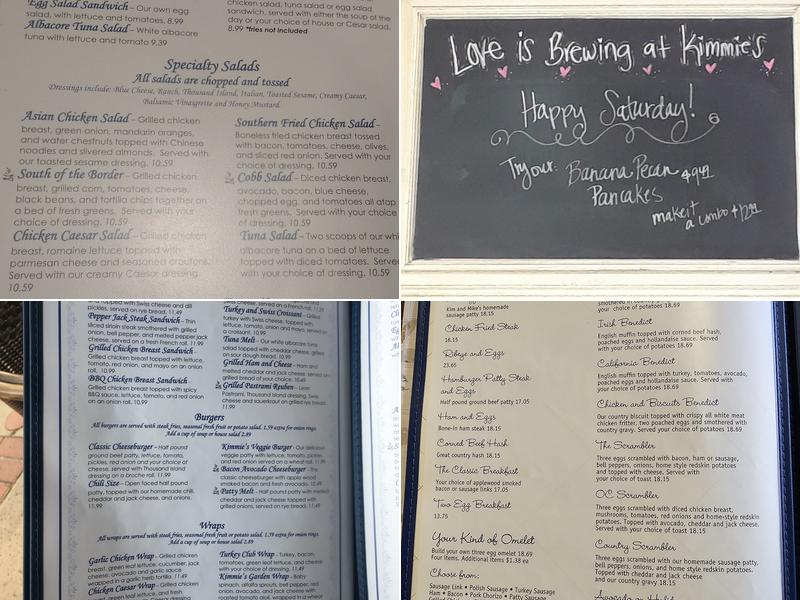 Egg Salad Sandwich - Our own egg
salad, with lettuce and tomatoes. 8.99
Albacore Tuna Salad - White albacore
tuna with lettuce and tomato 9.39
chicken salad, tuna salad or egg salad
sandwich, served with either the soup of the
day or your choice of house or Cesar salad.
8.99 *fries not included
Specialty Salads
All salads are chopped and tossed
Dressings include: Blue Cheese, Ranch, Thousand Island, Italian, Toasted Sesame, Creamy Caesar,
Balsamic Vinaigrette and Honey Mustard.
Asian Chicken Salad - Grilled chicken
breast, green onion, mandarin oranges,
and water chestnuts topped with Chinese
noodles and slivered almonds. Served with
our toasted sesame dressing. 10.59
South of the Border - Grilled chicken
breast, grilled corn, tomatoes, cheese,
black beans, and tortilla chips together on
a bed of fresh greens. Served with your
choice of dressing. 10.59
Chicken Caesar Salad - Grilled chicken
breast, romaine lettuce topped with
parmesan cheese and seasoned croutons.
Served with our creamy Caesar dressing.
10.59
Southern Fried Chicken Salad -
Boneless fried chicken breast tossed
with bacon, tomatoes, cheese, olives,
and sliced red onion. Served with your
choice of dressing. 10.59
Cobb Salad - Diced chicken breast,
avocado, bacon, blue cheese,
chopped egg, and tomatoes all atop
fresh greens. Served with your choice
of dressing. 10.59
Tuna Salad - Two scoops of our whi
albacore tuna on a bed of lettuce
topped with diced tomatoes. Served
with your choice of dressing. 10.59
Love is Brewing at Kimmie's
Happy Saturday!
Try our: Banana Pecan $9.49
Pancakes
make it
a combo
topped with Swiss cheese and dill
pickles, served on rye bread. 11.49
Pepper Jack Steak Sandwich - Thin
sliced sirloin steak smothered with grilled
onion, bell pepper, and melted pepper jack
cheese, served on a fresh French roll. 11.99
Grilled Chicken Breast Sandwich -
Grilled chicken breast topped with lettuce,
tomato, red onion, and mayo on an onion
roll. 10.99
BBQ Chicken Breast Sandwich -
Grilled chicken breast topped with spicy
BBQ sauce, lettuce, tomato, and red onion
on an onion roll. 10.99
cheese, served on a French roll.
Turkey and Swiss Croissant - Grilled
turkey with Swiss cheese, topped with
lettuce, tomato, onion and mayo, served on
a croissant.
Tuna Melt - Our white albacore tuna
salad topped with cheddar cheese, grilled
on sour dough bread. 10.99
Grilled Ham and Cheese - Ham and
melted cheddar and jack cheese, served on
grilled bread of your choice. 10.49
Grilled Pastrami Reuben - Lean
Pastrami, Thousand Island dressing, Swiss
cheese and sauerkraut on grilled rye bread.
11.99
Burgers
All burgers are served with steak fries, seasonal fresh fruit or potato salad. 1.59 extra for onion rings.
Add a cup of soup or house salad 2.89
Classic Cheeseburger - Half pound
ground beef patty, lettuce, tomato,
pickles, red onion and your choice of
cheese, served with Thousand Island
dressing on a brioche roll. 11.99
Chili Size - Open faced half pound
patty, topped with our homemade chili,
cheddar and jack cheese, and onions.
11.99
Kimmie's Veggie Burger - Our delicious
veggie patty with lettuce, tomato, pickles
and red onion served on a wheat roll. 11.49
Bacon Avocado Cheeseburger - The
classic cheeseburger with apple wood
smoked bacon and fresh avocado.
Patty Melt - Half pound patty with melted
cheddar and jack cheese topped with
grilled onions, served on rye bread. 11.49
Wraps
All wraps are served with steak fries, seasonal fresh fruit or potato salad. 1.59 extra for onion rings.
Add a cup of soup or house salad 2.89
Garlic Chicken Wrap - Grilled chicken
breast, green leaf lettuce, cucumber, jack
cheese, tomato, avocado and garlic sauce
wrapped in a garlic herb tortilla. 11.49
Chicken Caesar Wrap - Grilled chicken
breast, green leaf, and fresh
Turkey Club Wrap - Turkey, bacon,
tomatoes, green leaf lettuce, and cheese
with your choice of dressing. 11.49
Kimmie's Garden Wrap - Baby
spinach, alfalfa sprouts, bell pepper, red
onion, avocado, and jack cheese with
roasted tomato aioli, wrapped in a wheat
Kim and Mike's homemade
sausage patty 18.15
Chicken Fried Steak
18.15
Ribeye and Eggs
23.65
Hamburger Patty Steak
and Eggs
Half pound ground beef patty 17.05
Ham and Eggs
Bone-in ham steak 18.15
Corned Beef Hash
Great country hash 18.15
The Classic Breakfast
Your choice of applewood smoked
bacon or sausage links 17.05
Two Egg Breakfast
13.75
Your Kind of Omelet
Build your own three egg omelet 18.69
Four items. Additional items $1.38 ea
Choose from:
Sausage Link • Polish Sausage • Turkey Sausage
Ham • Bacon • Pork Chorizo • Patty Sausage
your choice of potatoes 18.69
Irish Benedict
English muffin topped with corned beef hash,
poached eggs and hollandaise sauce. Served
with your choice of potatoes 18.69
California Benedict
English muffin topped with turkey, tomatoes, avocado,
poached eggs and hollandaise sauce. Served with
your choice of potatoes 18.69
Chicken and Biscuits Benedict
Our country biscuit topped with crispy all white meat
chicken fritter, two poached eggs and smothered with
country gravy. Served with your choice of potatoes 18.69
The Scrambler
Three eggs scrambled with bacon, ham or sausage,
bell peppers, onions, home style redskin potatoes
and cheddar and jack cheese. Served with your
choice of toast 18.15
OC Scrambler
Three eggs scrambled with diced chicken breast,
mushrooms, tomatoes, red onions and home-style redskin
potatoes. Topped with avocado, cheddar and jack cheese.
Served with your choice of toast 18.15
Country Scrambler
Three eggs scrambled with our homemade sausage patty,
bell peppers, onions, and home style redskin potatoes.
Topped with cheddar and jack cheese
and our country gravy 18.15